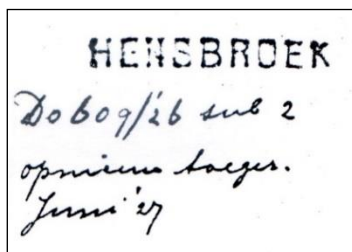 HENSBROEK
Do 609/'26 sub 2
opnieuw toeger.
Juni '27